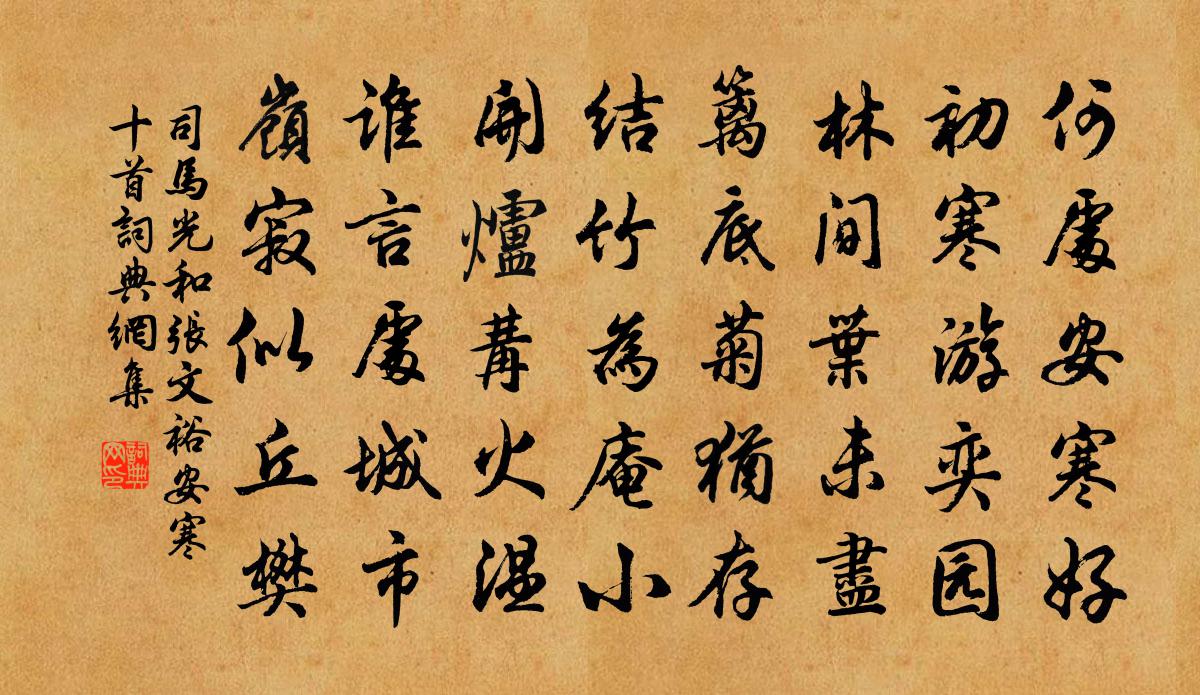 何處安寒好
初寒游奕园
林間葉未盡
籬底菊猶存
結竹為庵小
開爐冓火温
誰言處城市
嶺寂似丘樊
司馬光和張文裕安寒
十首詞典網集
詞典
网印